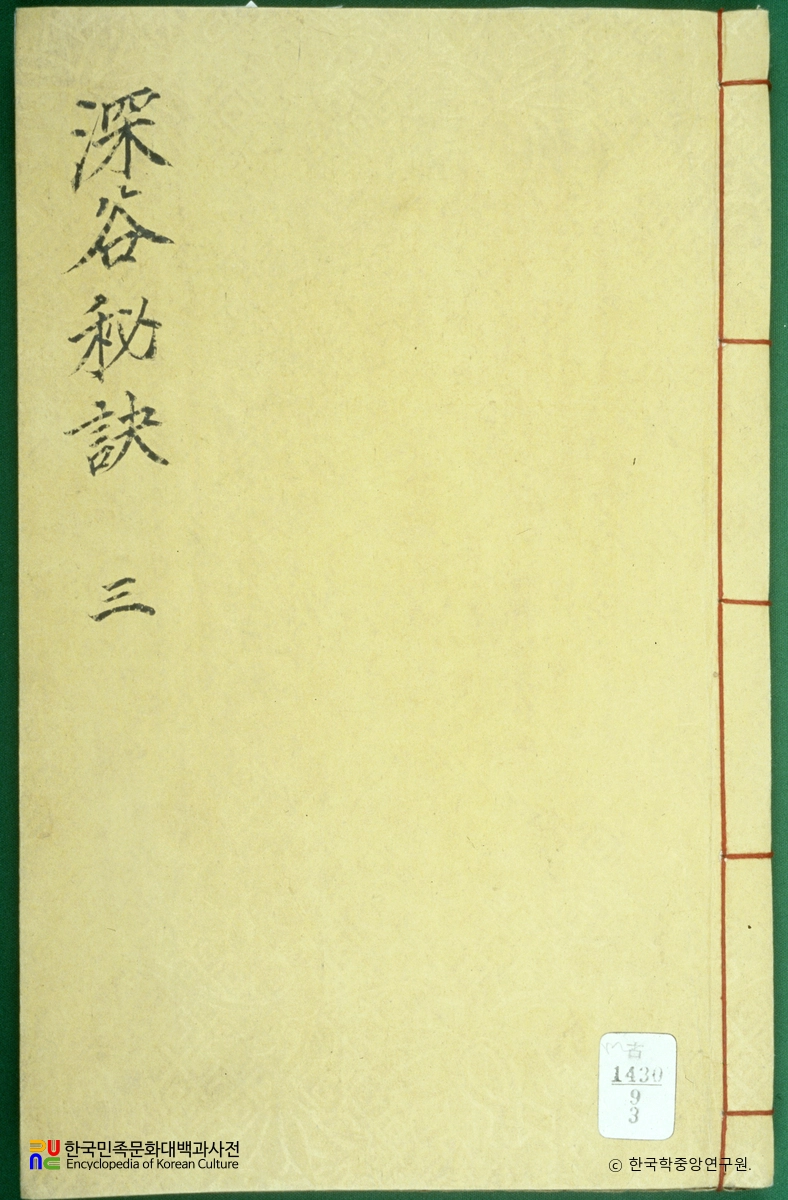 深谷秘訣
三
古
1430
9
3
한국민족문화대백과사전
Encyclopedia of Korean Culture
© 한국학중앙연구원.